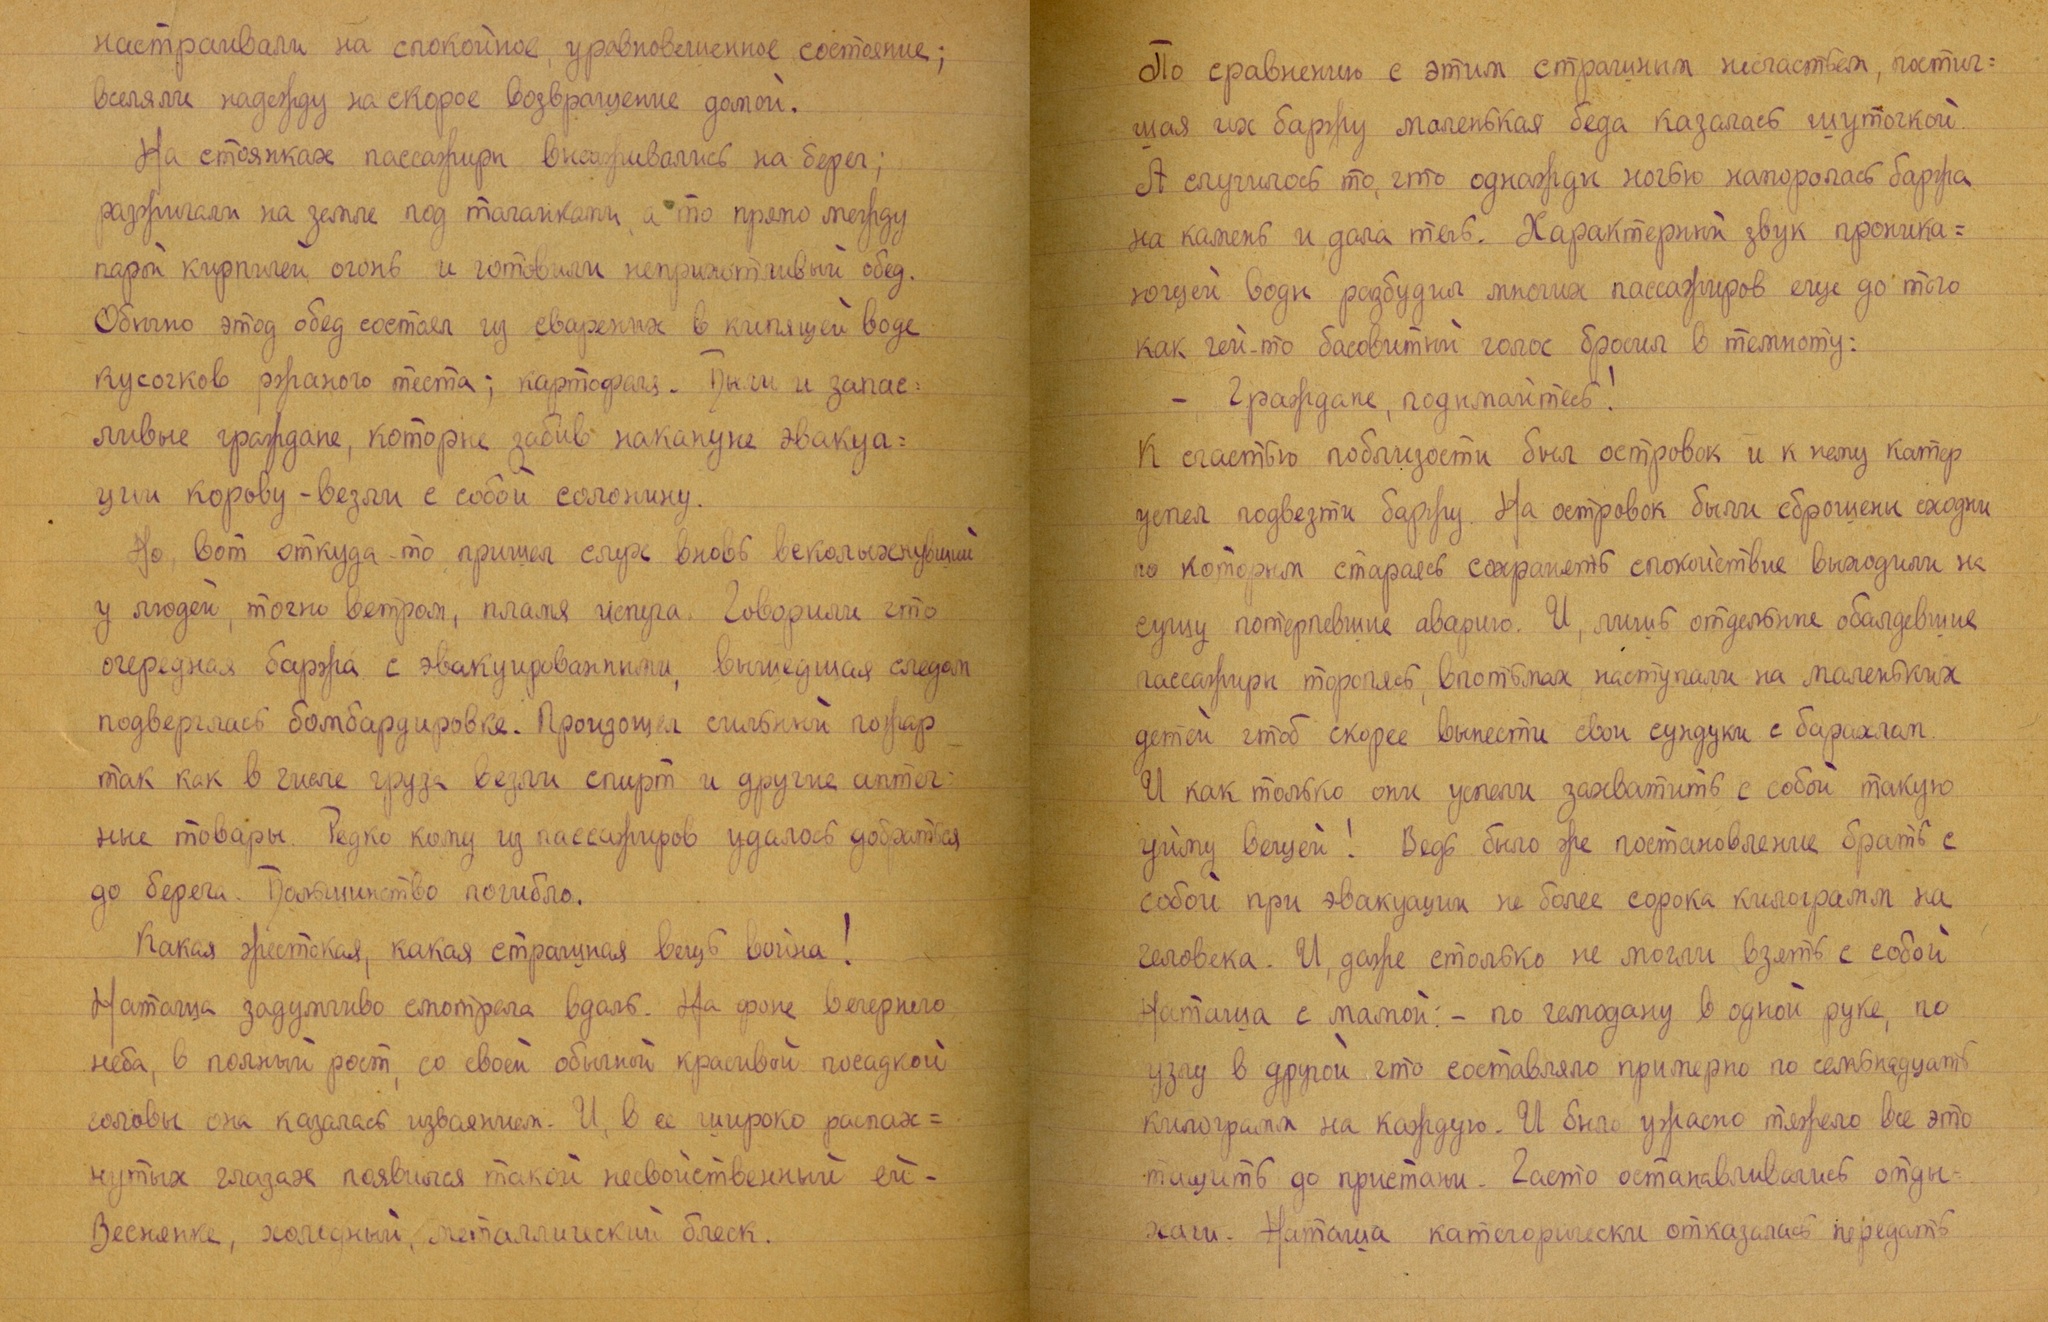 настраивали на спокойное, уравновешенное состояние;
вселяли надежду на скорое возвращение домой.
На стоянках пассажиры высаживались на берег;
разжигали на земле под таганками, а то прямо между
парой кирпичей огонь и готовили неприхотливый обед.
Обычно этод обед состоял из сваренных в кипящей воде
кусочков ржаного теста; картофеля. Были и запас=
ливые граждане, которые забив накануне эвакуа=
ции корову - везли с собой солонину.
Но, вот откуда-то пришел слух вновь всколыхнувший
у людей, точно ветром, пламя испуга. Говорили что
очередная баржа с эвакуированными, вышедшая следом
подверглась бомбардировке. Произошел сильный пожар
так как в числе груза везли спирт и другие аптеч=
ные товары. Редко кому из пассажиров удалось добраться
до берега. Большинство погибло.
Какая жестокая, какая страшная вещь война!
Наташа задумчиво смотрела вдаль. На фоне вечернего
неба, в полный рост, со своей обычной красивой посадкой
головы она казалась изваянием. И, в ее широко распах=
нутых глазах появился такой несвойственный ей -
Веснянке, холодный, металлический блеск.
По сравнению с этим страшным несчастьем, постиг=
шая их баржу маленькая беда казалась шуточкой.
А случилось то, что однажды ночью напоролась баржа
на камень и дала течь. Характерный звук проника=
ющей воды разбудил многих пассажиров еще до того
как чей-то басовитый голос бросил в темноту:
- Граждане, подымайтесь!
К счастью поблизости был островок и к нему катер
успел подвезти баржу. На островок были сброшены сходни
по которым стараясь сохранять спокойствие выходили на
сушу потерпевшие аварию. И, лишь отдельные обалдевшие
пассажиры торопясь, впотьмах наступали на маленьких
детей чтоб скорее вынести свои сундуки с барахлом.
И как только они успели захватить с собой такую
уйму вещей! Ведь было же постановление брать с
собой при эвакуации не более сорока килограмм на
человека. И, даже столько не могли взять с собой
Наташа с мамой: - по чемодану в одной руке, по
узлу в другой что составляло примерно по семьнадцать
килограмм на каждую. И было ужасно тяжело все это
тащить до пристани. Часто останавливались отды=
хали. Наташа категорически отказалась передать